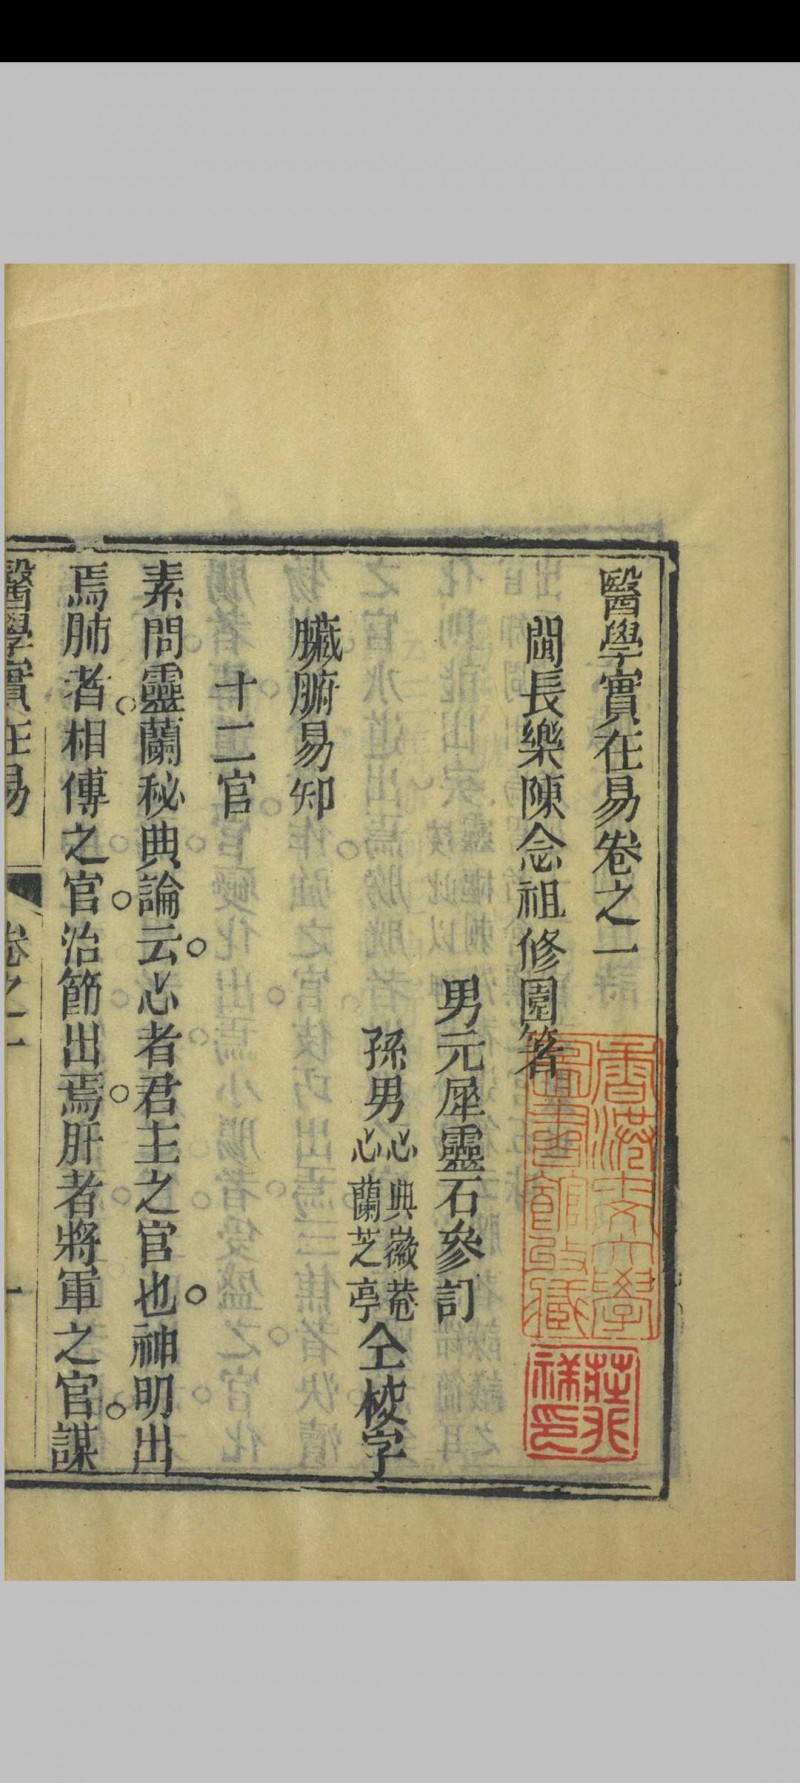 醫學實在易卷之一
閩長樂陳念祖修園著
男元犀靈石參訂
孫男心典徽菴心蘭芝亭仝校字
臟腑易知
十二官
素問靈蘭秘典論云心者君主之官也神明出
焉肺者相傅之官治節出焉肝者將軍之官謀
醫學實在易 卷之一 一
香港大學
圖書館收藏
莊兆
祥印